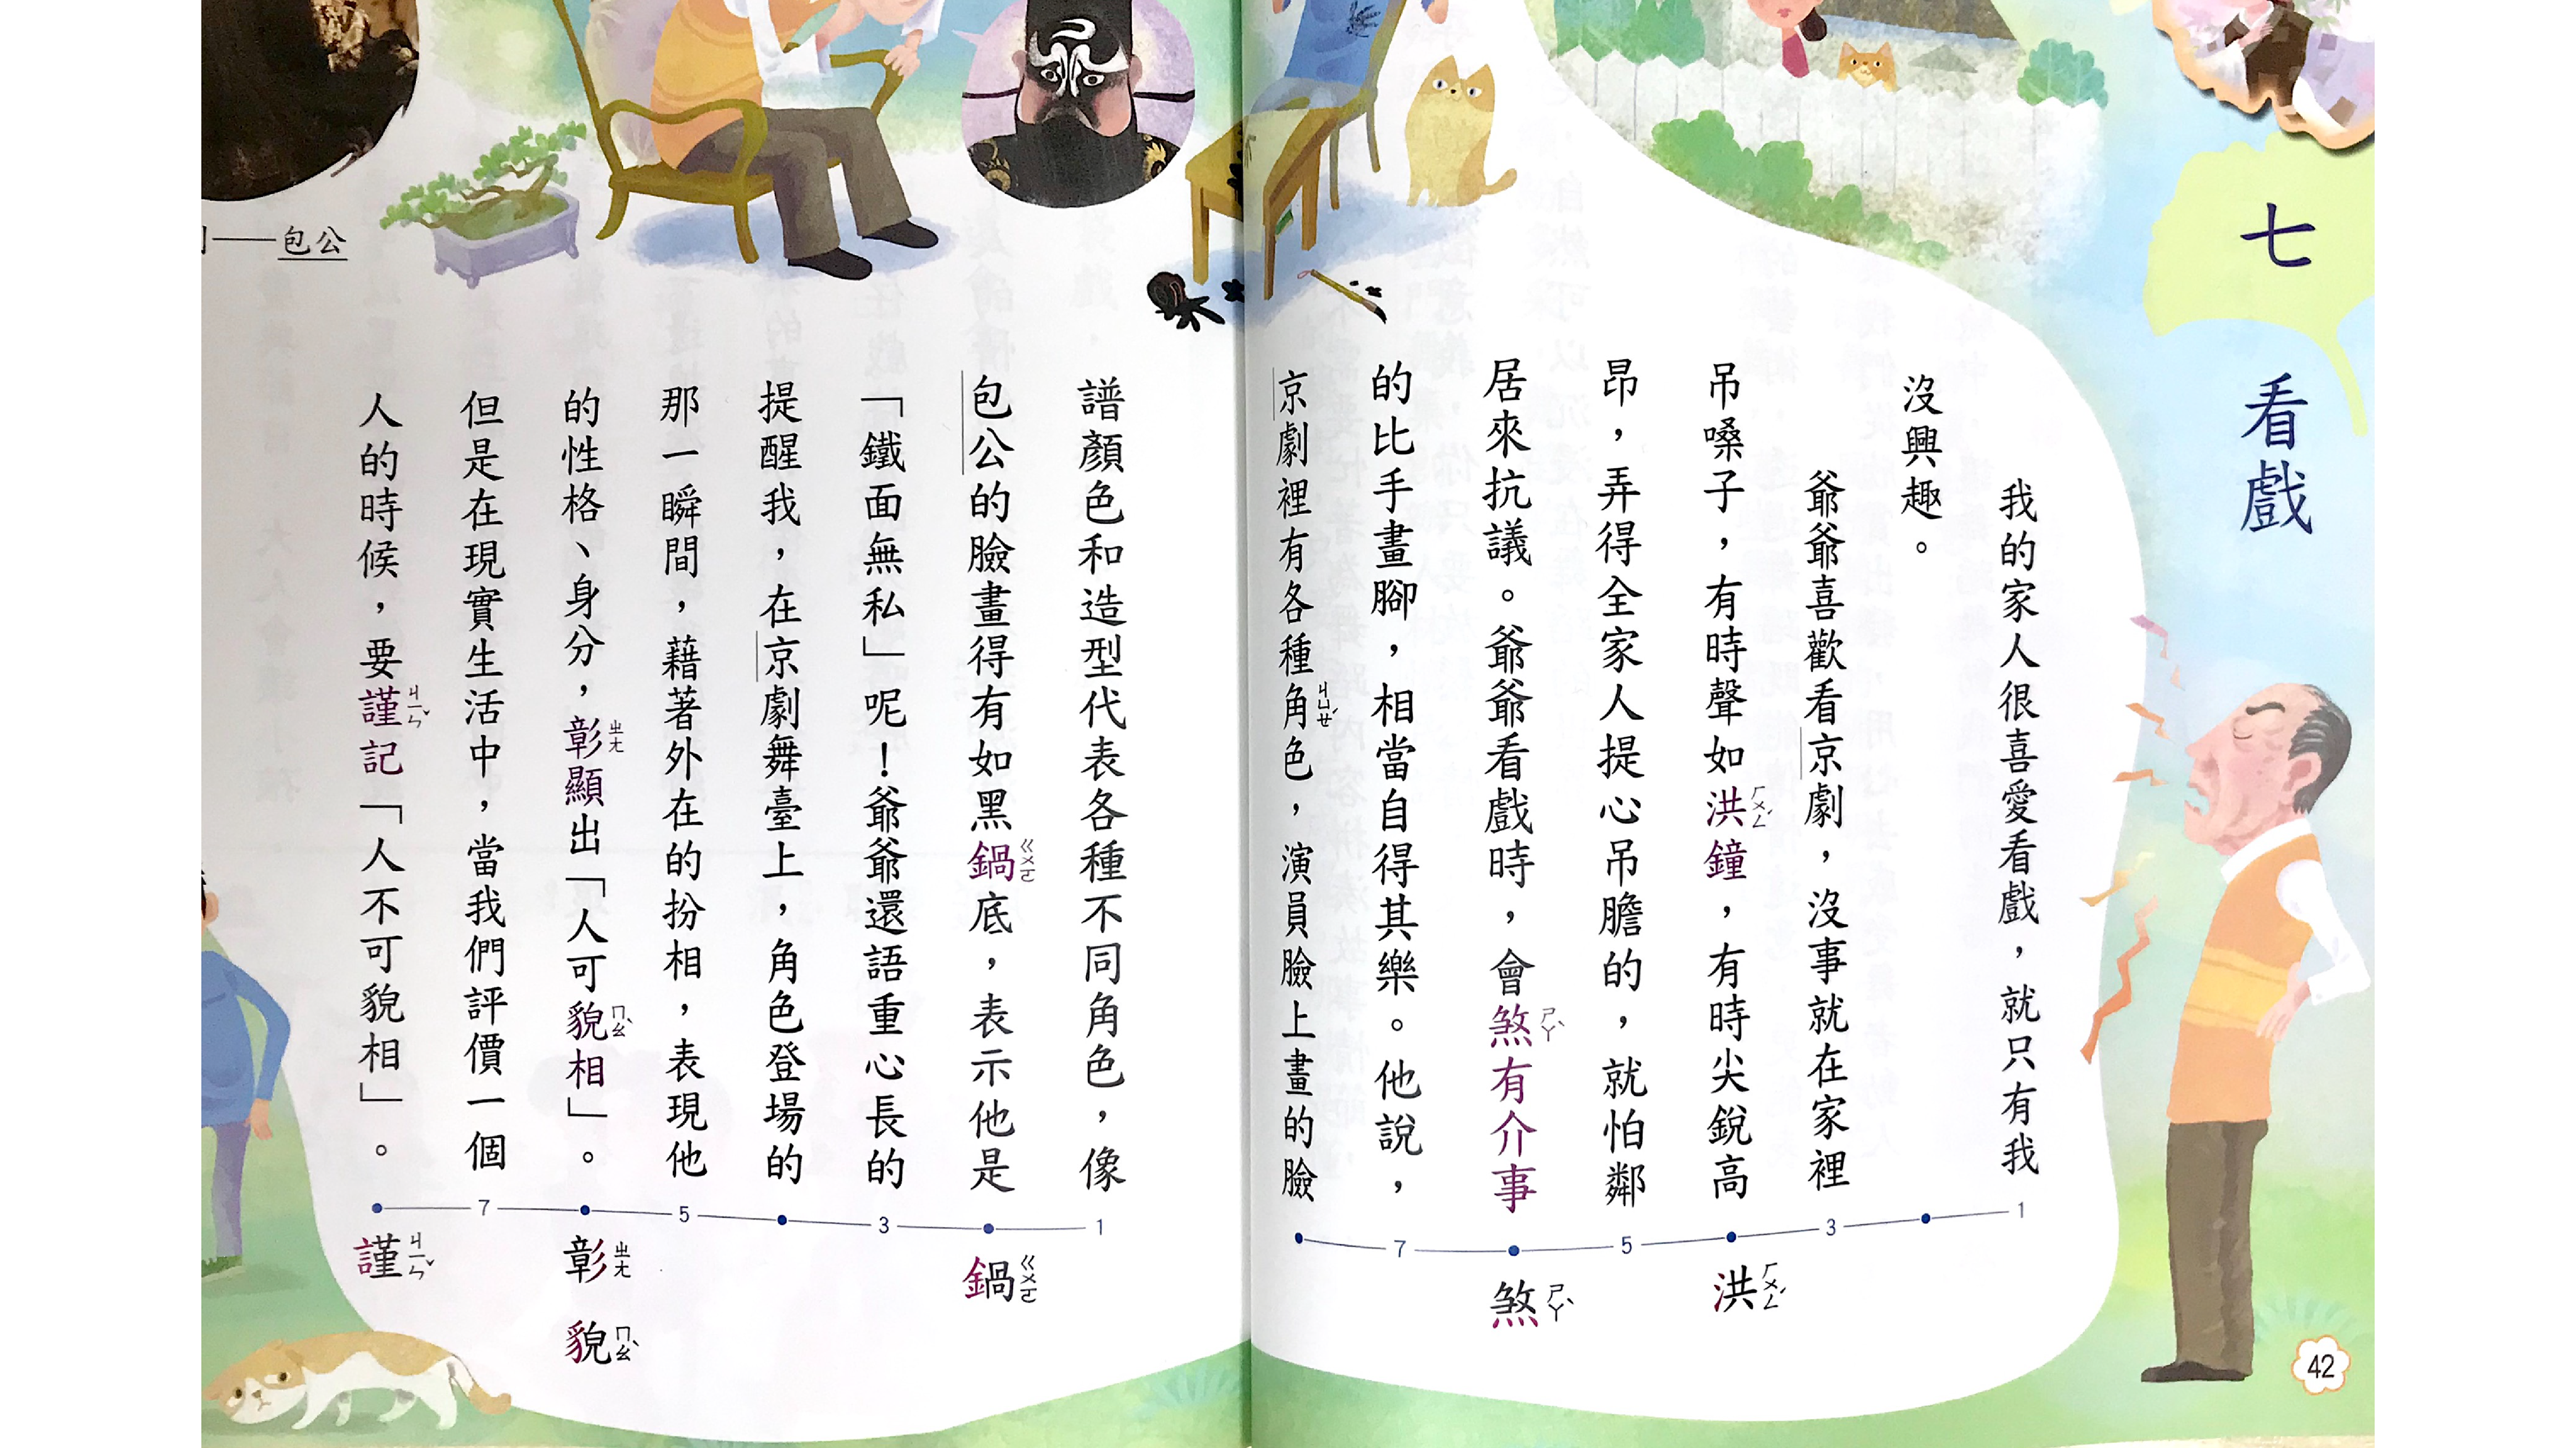 七 看戲
我的家人很喜愛看戲，就只有我
沒興趣。
爺爺喜歡看京劇，沒事就在家裡
吊嗓子，有時聲如洪ㄏㄨㄥˊ鐘，有時尖銳高
昂，弄得全家人提心吊膽的，就怕鄰
居來抗議。爺爺看戲時，會煞ㄕㄚˋ有介事
的比手畫腳，相當自得其樂。他說，
京劇裡有各種角ㄐㄩㄝˊ色，演員臉上畫的臉
1
3
5
7
洪ㄏㄨㄥˊ
煞ㄕㄚˋ
42
包公
譜顏色和造型代表各種不同角色，像
包公的臉畫得有如黑鍋ㄍㄨㄛ底，表示他是
「鐵面無私」呢！爺爺還語重心長的
提醒我，在京劇舞臺上，角色登場的
那一瞬間，藉著外在的扮相，表現他
的性格、身分，彰ㄓㄤ顯出「人可貌ㄇㄠˋ相」。
但是在現實生活中，當我們評價一個
人的時候，要謹ㄐㄧㄣˇ記「人不可貌相」。
1
3
5
7
鍋ㄍㄨㄛ
彰ㄓㄤ
貌ㄇㄠˋ
謹ㄐㄧㄣˇ